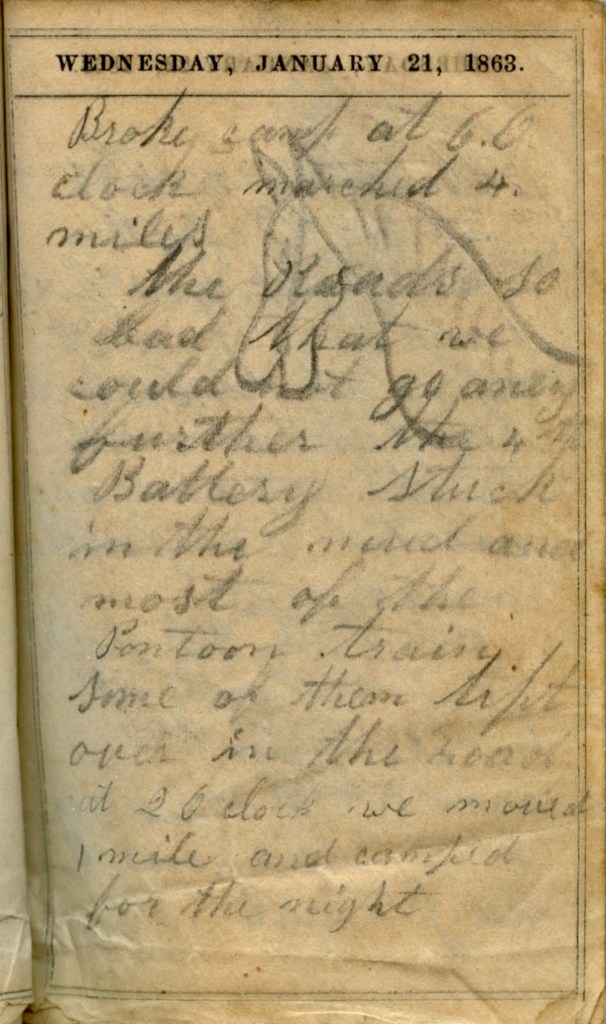 WEDNESDAY, JANUARY 21, 1863.
Broke camp at 6. O
clock marched 4.
miles
the Roads so
bad that we
could not go aney
further the 4th
Battery stuck
in the mud and
most of the
Pontoon train
some of them tipt
over in the road
at 2 O clock we moved
1 mile and camped
for the night